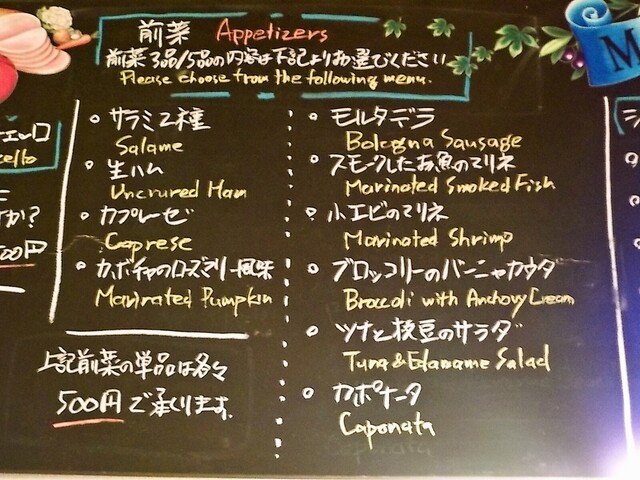 前菜 Appetizers
前菜3品/5品の内容は下記よりお選びください
Please choose from the following menu.
サラミ2種
Salame
生ハム
Uncrured Ham
カプレーゼ
Caprese
カボチャのローズマリー風味
Marinated Pumpkin
上記前菜の単品は各々
500円で承ります。
モルタデラ
Bologna Sausage
スモークしたお魚のマリネ
Marinated Smoked Fish
小エビのマリネ
Marinated Shrimp
ブロッコリーのバーニャカウダ
Broccoli with Anchovy Cream
ツナと枝豆のサラダ
Tuna & Edamame Salad
カポナータ
Caponata
M
か?
00円